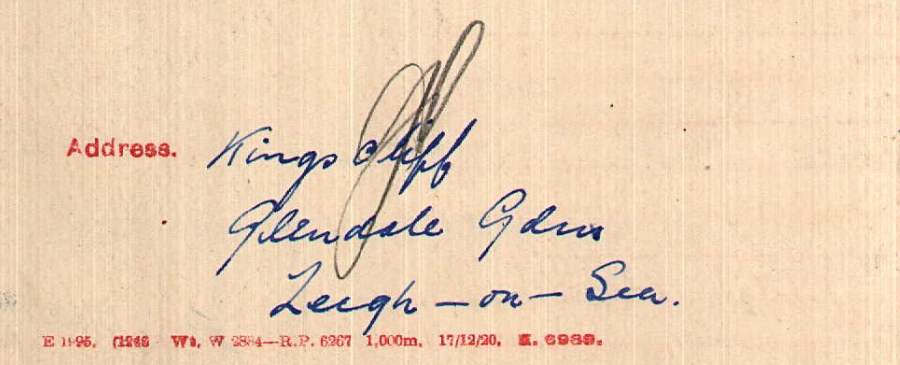 Address. Kings Cliff
Glendale Gdns
Leigh-on-Sea.
W 2884—R.P. 6267 1,000m. 17/12/20. E. 6989.